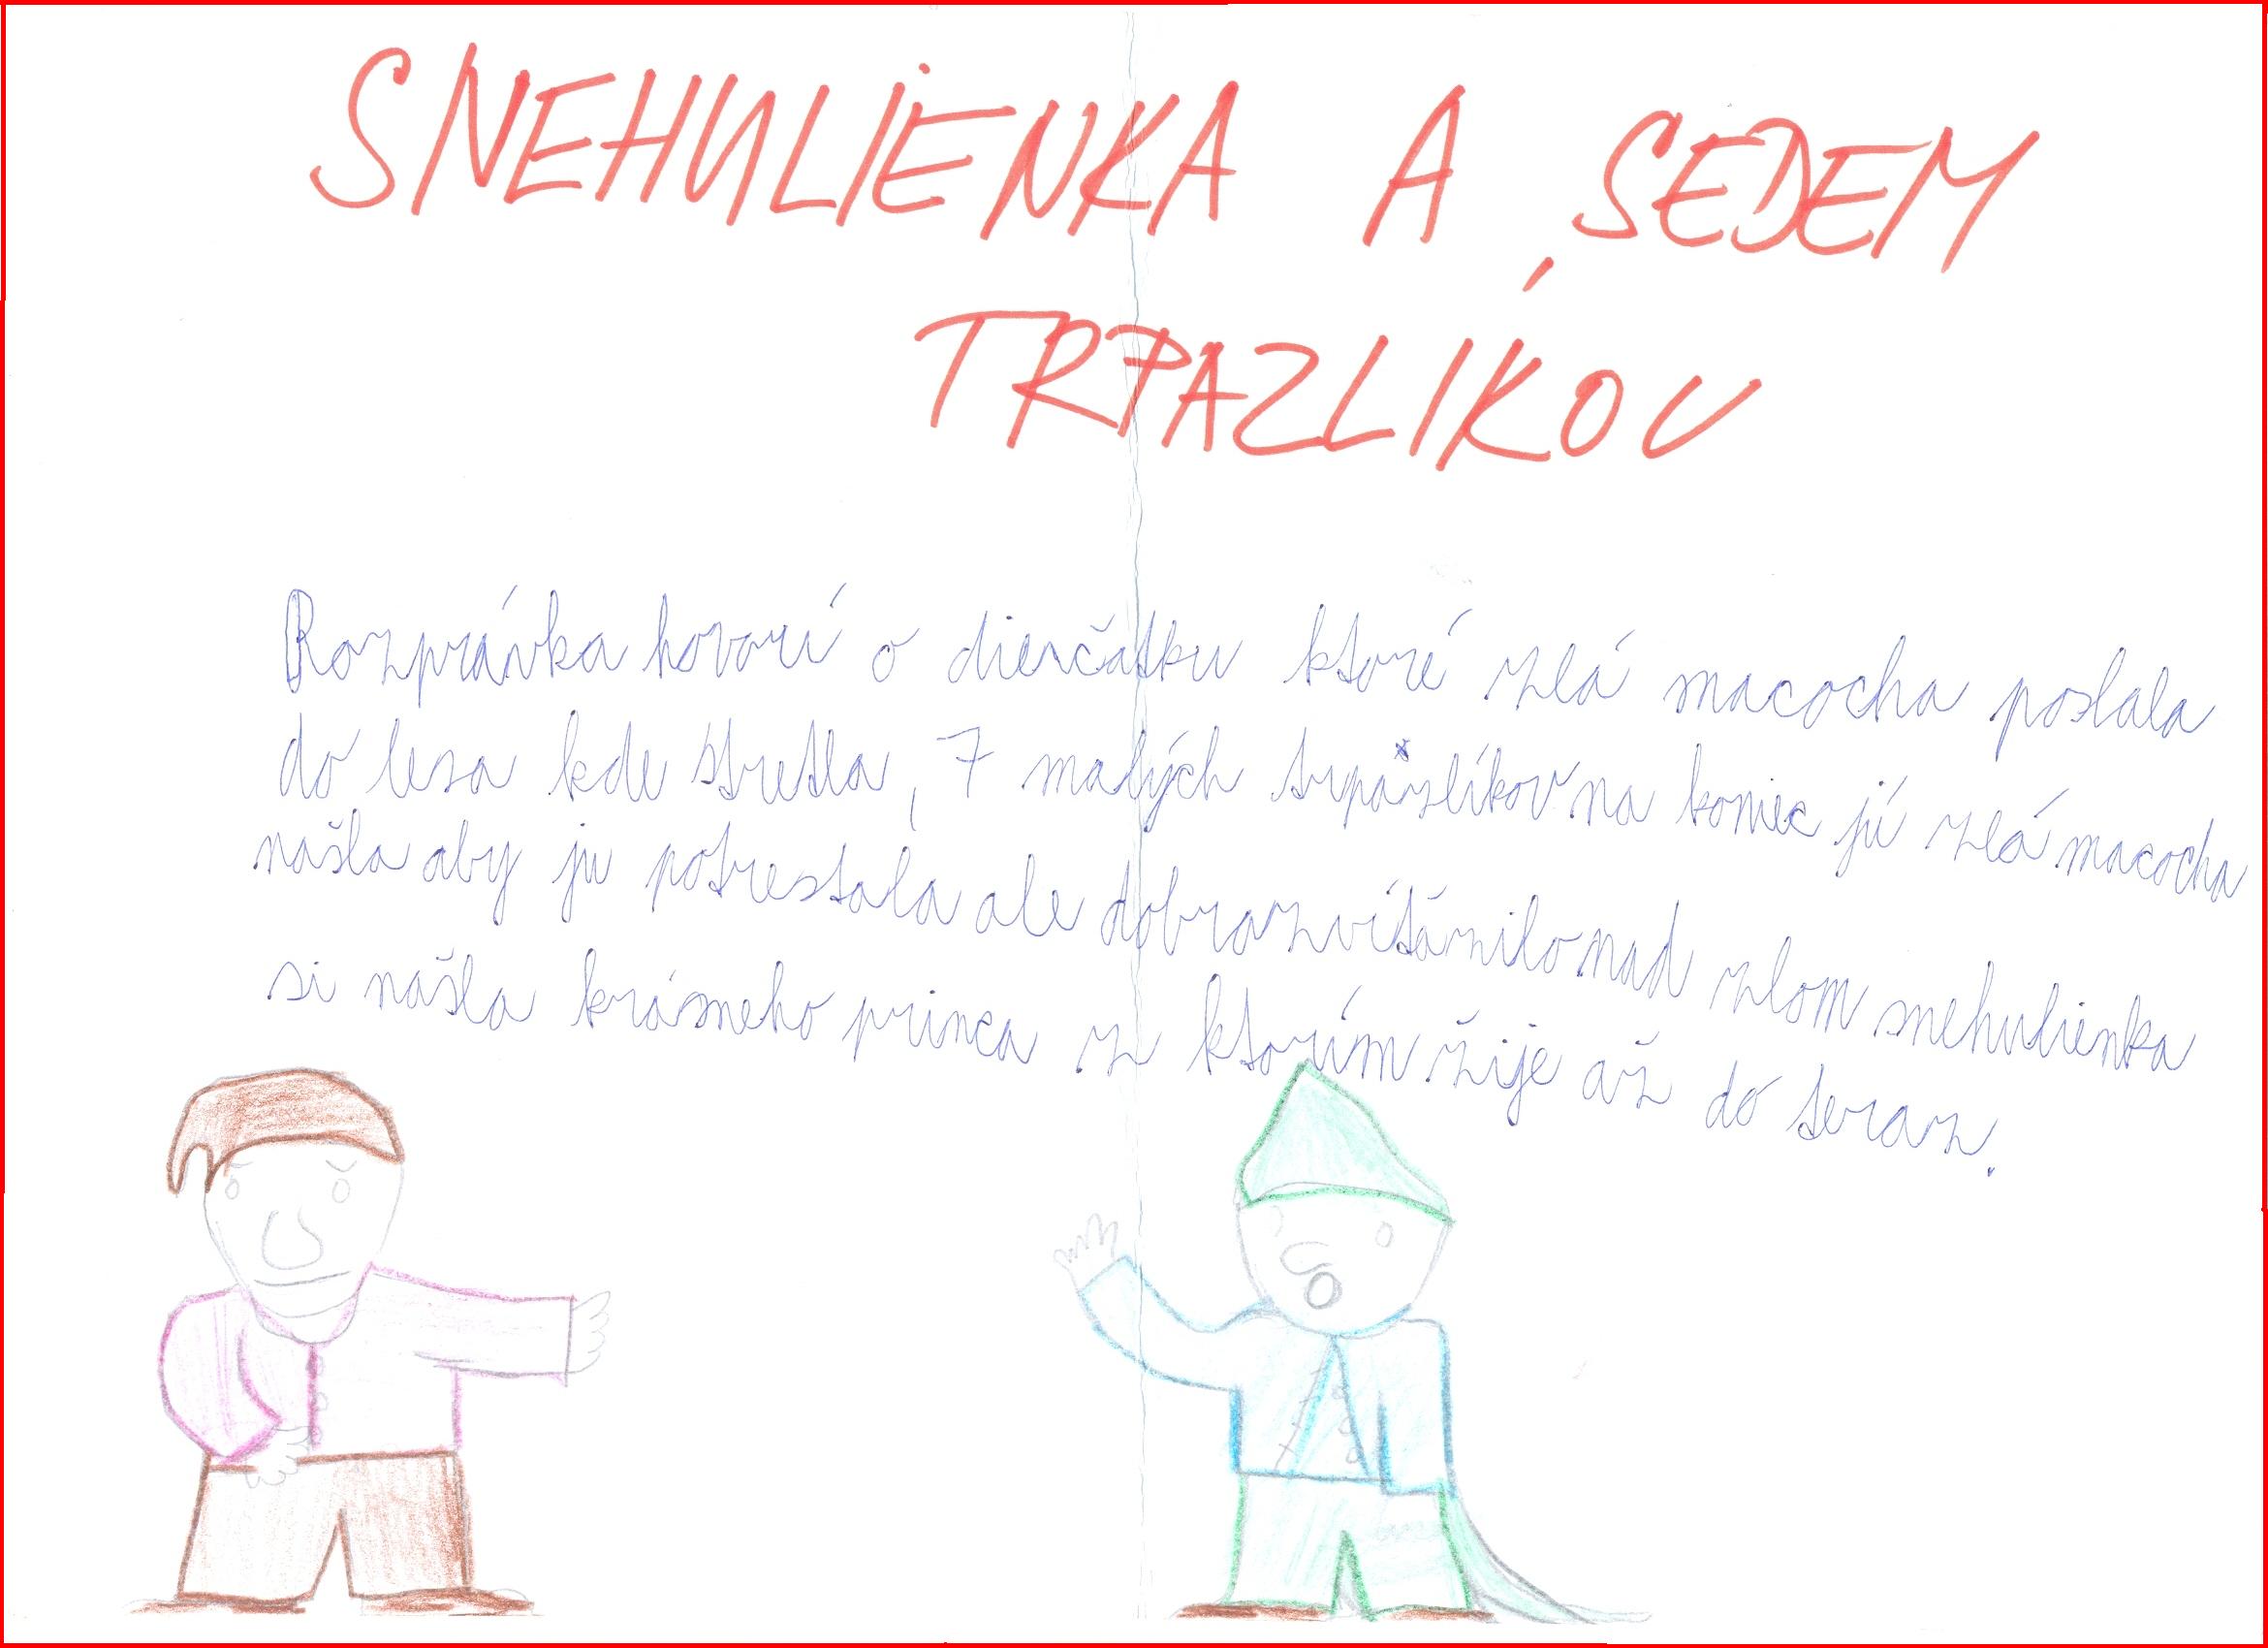 SNEHULIENKA A SEDEM
TRPAZLÍKOV
Rozprávka hovorí o dievčatku ktoré zlá macocha poslala
do lesa kde stretla, 7 malých trpaslíkov na koniec jú zlá macocha
našla aby ju potrestala ale dobrazvíťazilo nad zlom snehulienka
si našla krásneho princa z ktorím žije až do teraz.